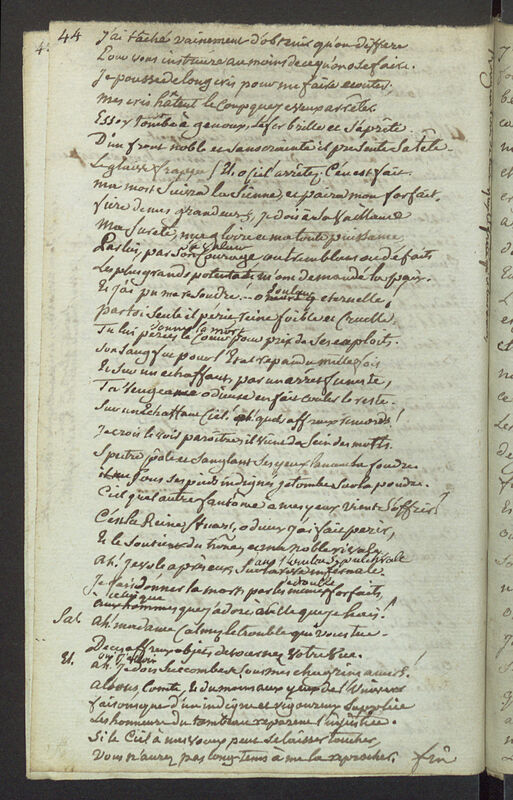 44
J'ai tâché vainement d'obtenir qu'on differe
Pour vous instruire au moins de ce qu'on ose faire.
Je pousse de longs cris pour me faire ecouter.
mes cris hâtent le coup que je veux arrêter.
Essex tombe à genoux, le fer brille et s'aprête
D'un front noble et sans crainte il presente sa tête
Le glaive frappe El. o ciel arrêtez. C'en est fait.
ma mort suivra la sienne, et paira mon forfait.
fiere de mes grandeurs, je dois à sa vaillance
Ma sureté, ma gloire et ma toute puissance,
Par lui, par son courage, valeur ou defaits
Les plus grands potentats m'ont demandé la paix.
Et j'ai pu me resoudre... o douleur eternelle!
par toi seule il perit, reine foible et cruelle.
Tu lui donnes la mort pour prix de ses exploits.
Son sang fut pour l'Etat repandu mille fois
Et sur un echaffaut, par un arrest funeste,
Ta vengeance odieuse en fait couler le reste.
Sur un Echaffaut Ciel! ah! quels affreux remords!
Je crois le voir paraître, il vient du sein des morts.
Spectre pâle et sanglant ses yeux lancent la foudre
sous ses pieds indignes je tombe sur la poudre.
Ciel quel autre fantome a mes yeux vient s'offrir?
C'est la Reine Stuart, o dieux j'ai fait perir,
Et le soutien du trône, et ma noble rivale
Ah! je vole après eux
Je fais donner la mort par les mêmes forfaits,
à celui que j'adore, à celle que je hais!
Sal. Ah! madame calmez le trouble qui vous tue.
De ces affreux objets detournez votre vue.
El. Ah! je dois succomber sous mes chagrins amers!
allons, Comte, et du moins aux yeux de l'Univers
faisons que d'un indigne et rigoureux supplice
Les honneurs du tombeau reparent l'injustice.
Si le Ciel à mes voeux peut se laisser toucher,
Vous n'aurez pas long-tems à me la reprocher. fin